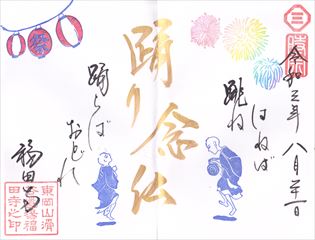 令和三年 八月二十一日
はねば
跳ね
踊り念仏
踊らば
おどれ
福田寺
祭
東岡山済
福田寺之印